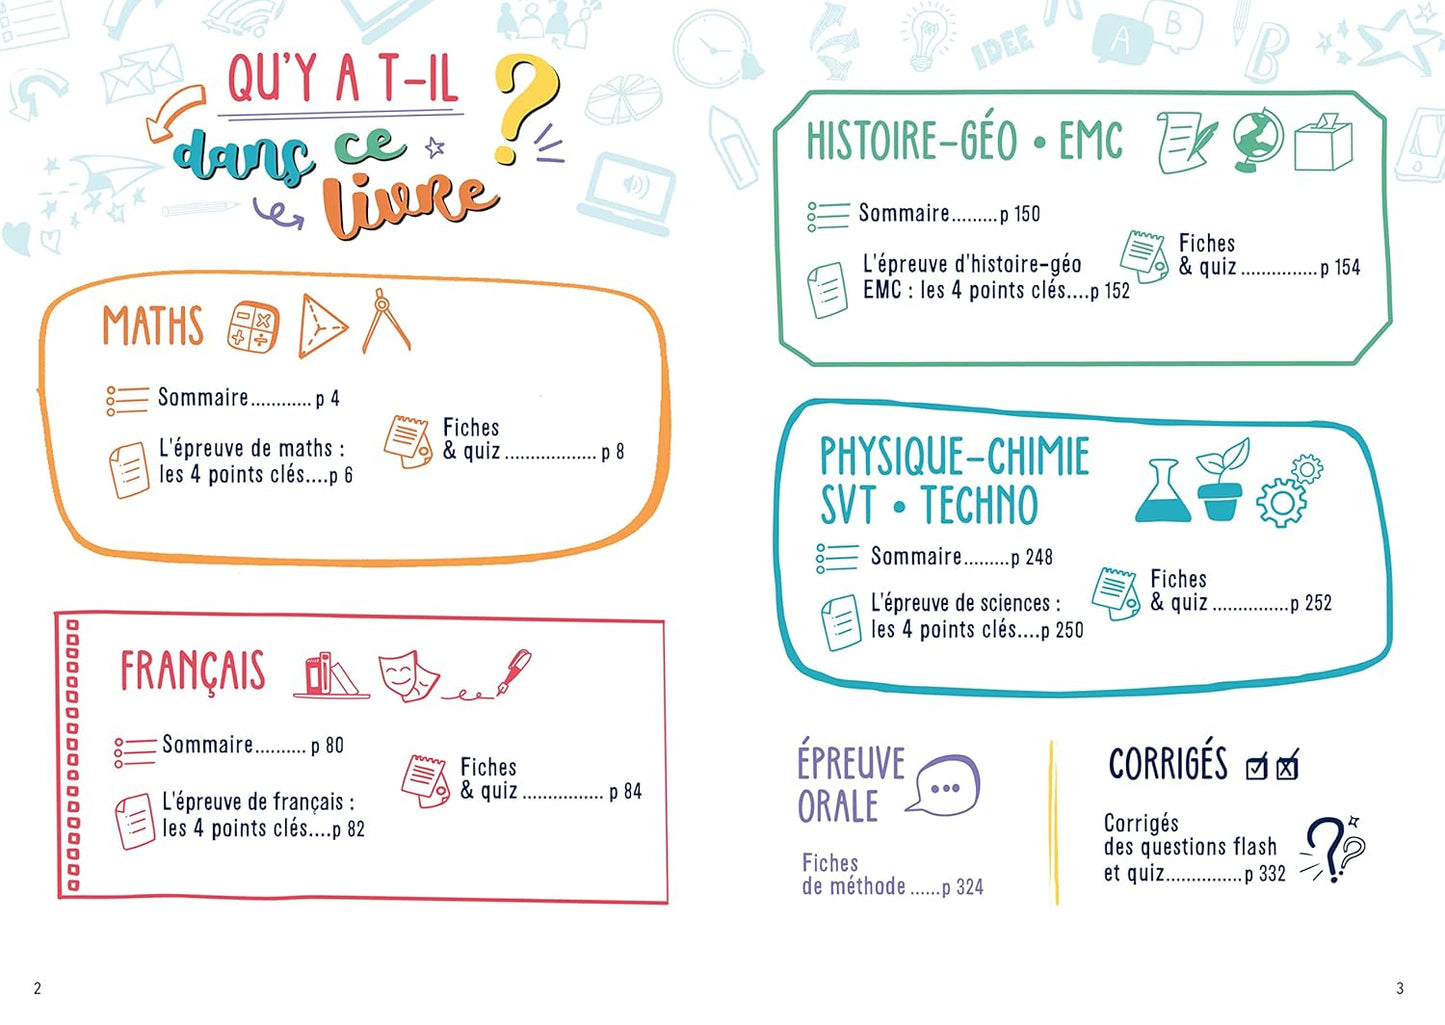 QU'Y A T-IL
dans ce
livre ?
MATHS
Sommaire............ p 4
L'épreuve de maths :
les 4 points clés....p 6
Fiches
& quiz .................. p 8
FRANÇAIS
Sommaire.......... p 80
L'épreuve de français :
les 4 points clés....p 82
Fiches
& quiz ................ p 84
2
IDEE
A
B
B
HISTOIRE-GÉO • EMC
Sommaire.........p 150
L'épreuve d'histoire-géo
EMC : les 4 points clés....p 152
Fiches
& quiz ...............p 154
PHYSIQUE-CHIMIE
SVT • TECHNO
Sommaire.........p 248
L'épreuve de sciences :
les 4 points clés....p 250
Fiches
& quiz ...............p 252
ÉPREUVE
ORALE
Fiches
de méthode ......p 324
CORRIGÉS
Corrigés
des questions flash
et quiz...............p 332
3